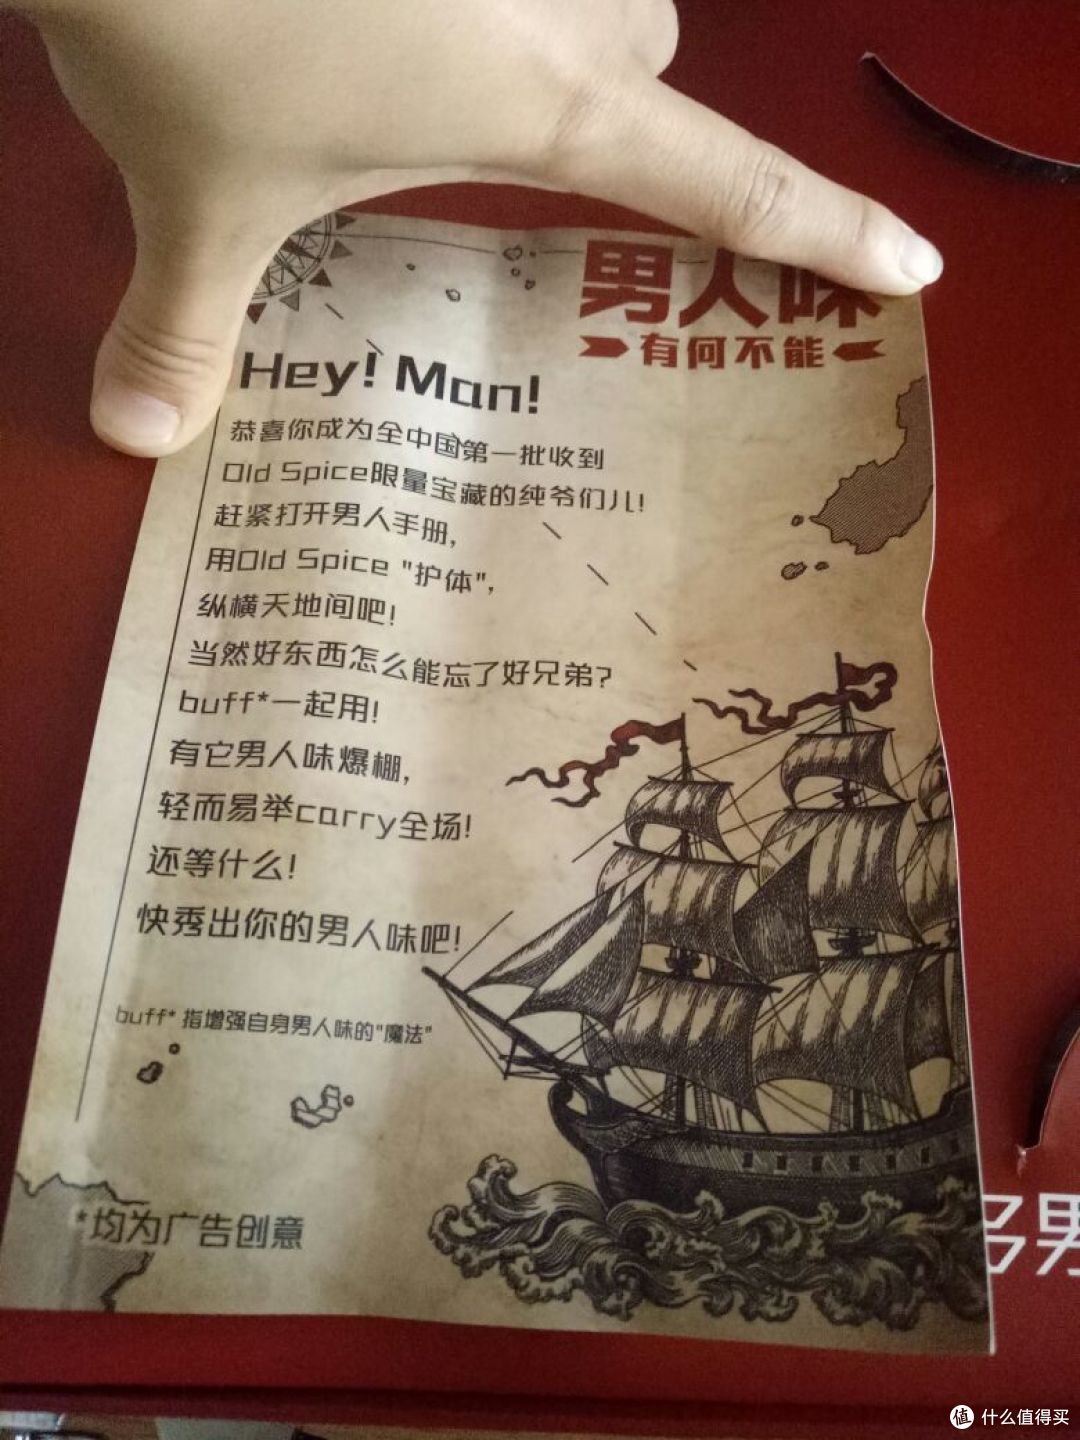 男人味
有何不能
Hey! Man!
恭喜你成为全中国第一批收到
Old Spice限量宝藏的纯爷们儿!
赶紧打开男人手册,
用Old Spice "护体",
纵横天地间吧!
当然好东西怎么能忘了好兄弟?
buff*一起用!
有它男人味爆棚,
轻而易举carry全场!
还等什么!
快秀出你的男人味吧!
buff* 指增强自身男人味的"魔法"
*均为广告创意
男
值 什么值得买